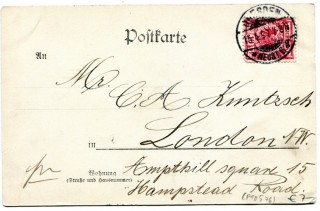 Postkarte
An
Mr. C. A. Kuntzsch
in London N.W.
Wohnung
(Straße und Hausnummer)
Ampthill square 15
Hampstead Road.
€ 7